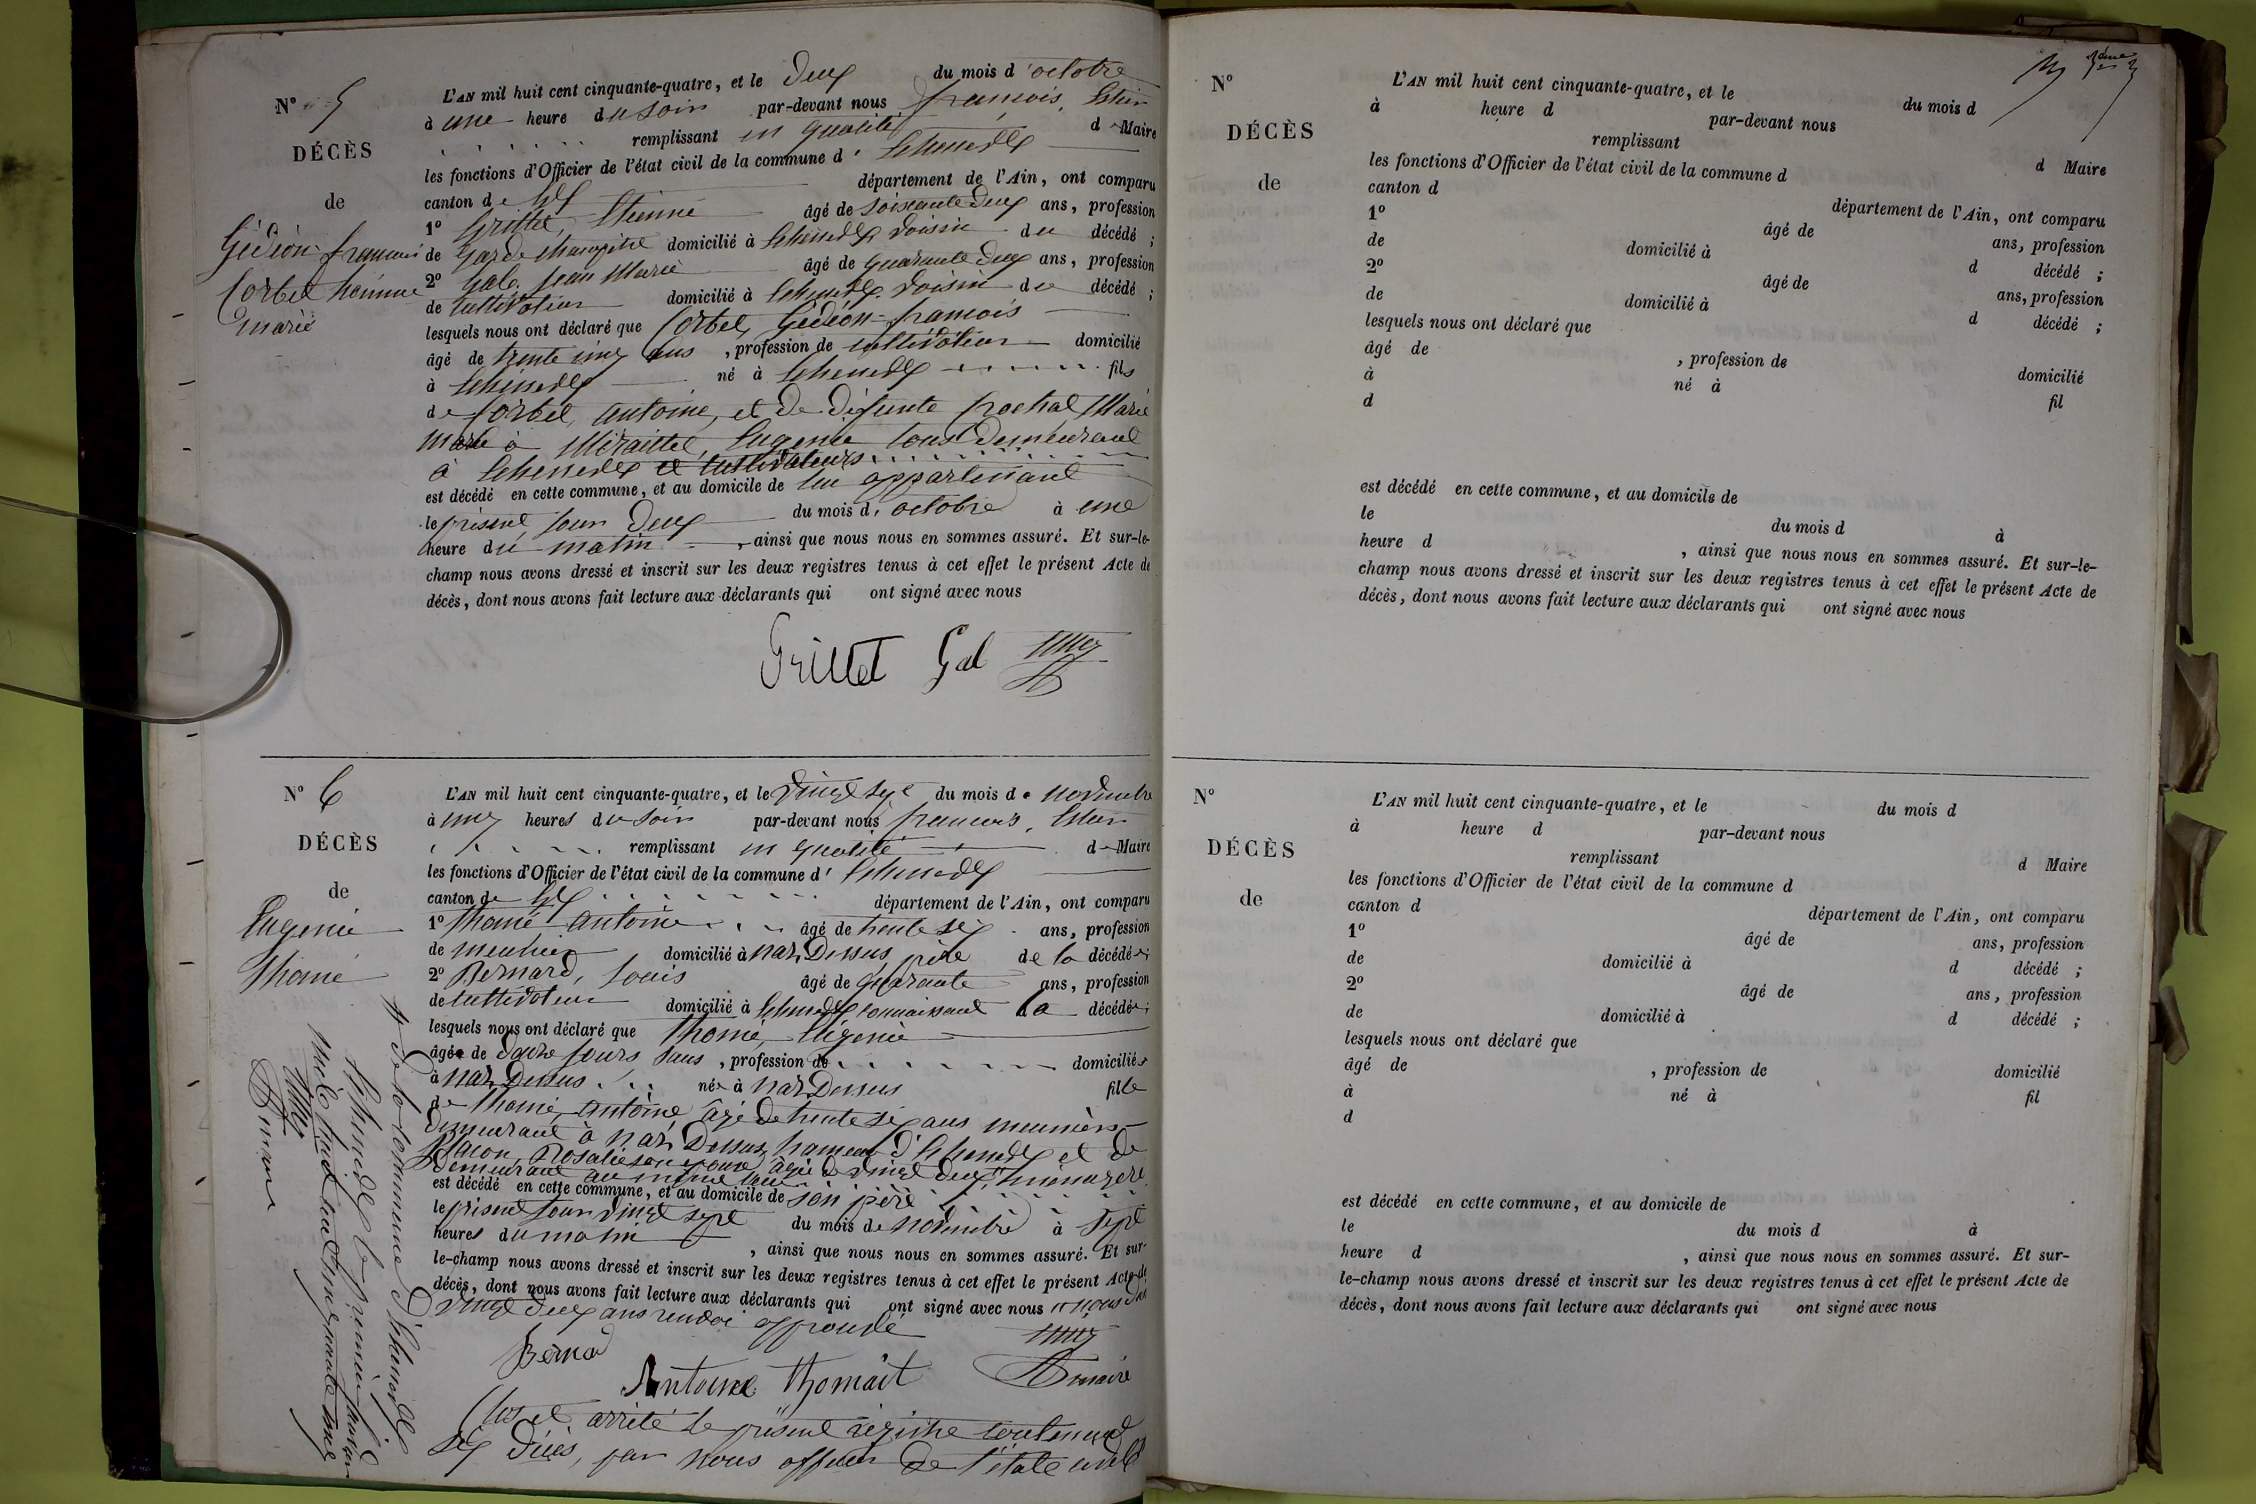 N° 5
DÉCÈS
de
Gédéon françois
Corbet homme
marié
L'AN mil huit cent cinquante-quatre, et le Deux du mois d'octobre
à une heure du soir par-devant nous françois,
remplissant en qualité de Maire
les fonctions d'Officier de l'état civil de la commune d' Echenevex
canton de Gex département de l'Ain, ont comparu
1° Grillet, Etienne âgé de soixante deux ans, profession
de garde champêtre domicilié à Echenevex voisin du décédé ;
2° Gal, Jean Marie âgé de quarante deux ans, profession
de cultivateur domicilié à Echenevex voisin du décédé ;
lesquels nous ont déclaré que Corbet, Gédéon-françois
âgé de trente cinq ans , profession de cultivateur domicilié
à Echenevex né à Echenevex fils
de Corbet, antoine, et de défunte Marie
marié à Eugenie tous demeurant
à Echenevex et cultivateurs
est décédé en cette commune, et au domicile de lui appartenant
le présent jour deux du mois d'octobre à une
heure du matin , ainsi que nous nous en sommes assuré. Et sur-le-
champ nous avons dressé et inscrit sur les deux registres tenus à cet effet le présent Acte de
décès, dont nous avons fait lecture aux déclarants qui ont signé avec nous
Grillet Gal
N° 6
DÉCÈS
de
Eugenie
Thomé
L'AN mil huit cent cinquante-quatre, et le vingt sept du mois de novembre
à cinq heures du soir par-devant nous françois,
remplissant en qualité de Maire
les fonctions d'Officier de l'état civil de la commune d' Echenevex
canton de Gex département de l'Ain, ont comparu
1° Thomé antoine âgé de trente six ans, profession
de meunier domicilié à naz Dessus, père de la décédée ;
2° Bernard, Louis âgé de quarante ans, profession
de cultivateur domicilié à Echenevex connaissant la décédée ;
lesquels nous ont déclaré que Thomé, Eugenie
âgée de douze jours sans , profession de domiciliée
à naz Dessus née à naz Dessus fille
de Thomé, antoine, âgé de trente six ans meunier
demeurant à naz Dessus, hameau d'Echenevex et de
Rosalie son épouse âgée de vingt deux, ménagère
demeurant au même lieu
est décédé en cette commune, et au domicile de son père
le présent jour vingt sept du mois de novembre à sept
heures du matin , ainsi que nous nous en sommes assuré. Et sur-
le-champ nous avons dressé et inscrit sur les deux registres tenus à cet effet le présent Acte de
décès, dont nous avons fait lecture aux déclarants qui ont signé avec nous
vingt deux ans renvoi approuvé
Bernad
Antoine Thomait maire
Clos et arrêté le présent régistre contenant
six décès, par nous officier de l'état civil
de la commune d'Echenevex
Echenevex le premier janvier
mil huit cent cinquante cinq
N°
DÉCÈS
de
L'AN mil huit cent cinquante-quatre, et le du mois d
à heure d par-devant nous
remplissant d Maire
les fonctions d'Officier de l'état civil de la commune d
canton d département de l'Ain, ont comparu
1° âgé de ans, profession
de domicilié à d décédé ;
2° âgé de ans, profession
de domicilié à d décédé ;
lesquels nous ont déclaré que
âgé de , profession de domicilié
à né à fil
d
est décédé en cette commune, et au domicile de
le du mois d à
heure d , ainsi que nous nous en sommes assuré. Et sur-le-
champ nous avons dressé et inscrit sur les deux registres tenus à cet effet le présent Acte de
décès, dont nous avons fait lecture aux déclarants qui ont signé avec nous
N°
DÉCÈS
de
L'AN mil huit cent cinquante-quatre, et le du mois d
à heure d par-devant nous
remplissant d Maire
les fonctions d'Officier de l'état civil de la commune d
canton d département de l'Ain, ont comparu
1° âgé de ans, profession
de domicilié à d décédé ;
2° âgé de ans, profession
de domicilié à d décédé ;
lesquels nous ont déclaré que
âgé de , profession de domicilié
à né à fil
d
est décédé en cette commune, et au domicile de
le du mois d à
heure d , ainsi que nous nous en sommes assuré. Et sur-
le-champ nous avons dressé et inscrit sur les deux registres tenus à cet effet le présent Acte de
décès, dont nous avons fait lecture aux déclarants qui ont signé avec nous